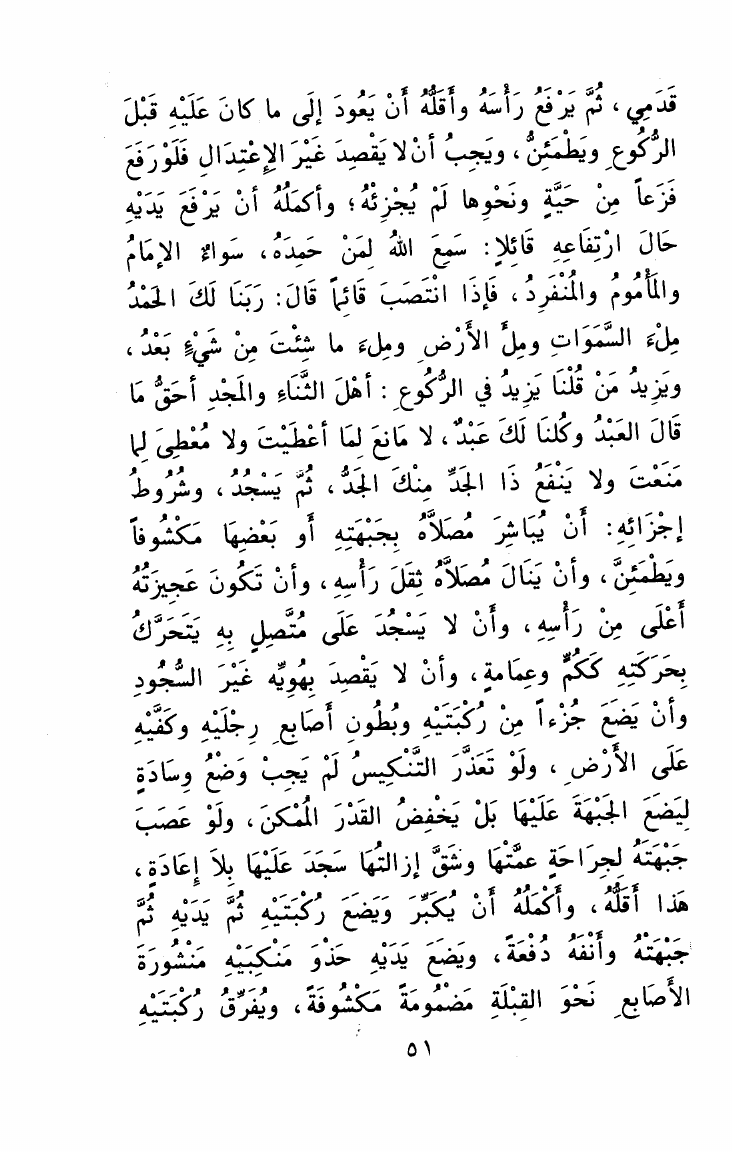 قَدَمِي ، ثُمَّ يَرْفَعُ رَأْسَهُ وأَقَلُّهُ أَنْ يَعُودَ إلَى ما كانَ عَلَيْهِ قَبْلَ
الرُّكُوعِ ويَطْمَئِنُّ ، ويَجِبُ أنْ لا يَقْصِدَ غَيْرَ الإِعْتِدَالِ فَلَوْ رَفَعَ
فَزَعاً مِنْ حَيَّةٍ ونَحْوِها لَمْ يُجْزِئْهُ ؛ وأكمَلُهُ أنْ يَرْفَعَ يَدَيْهِ
حَالَ ارْتِفَاعِهِ قَائِلاٍ : سَمِعَ اللهُ لِمَنْ حَمِدَهُ ، سَواءٌ الإمَامُ
والمَأْمُومُ والمُنْفَرِدُ ، فَإذَا انْتَصَبَ قَائِماً قَالَ : رَبَنَا لَكَ الحَمْدُ
مِلْءَ السَّمَوَاتِ ومِلْأَ الأَرْضِ ومِلءَ ما شِئْتَ مِنْ شَيْءٍ بَعْدُ ،
ويَزِيدُ مَنْ قُلْنَا يَزِيدُ في الرُّكُوعِ : أهْلَ الثَّنَاءِ والمَجْدِ أحَقُّ مَا
قَالَ العَبْدُ وكُلنَا لَكَ عَبْدٌ ، لا مَانعَ لِمَا أعْطَيْتَ ولا مُعْطِىَ لِما
مَنَعْتَ ولا يَنْفَعُ ذَا الجَدِّ مِنْكَ الجَدُّ ، ثُمَّ يَسْجُدُ ، وشُرُوطُ
إجْزَائِهِ : أَنْ يُبَاشِرَ مُصَلاَّهُ بِجَبْهَتِهِ أو بَعْضِهَا مَكْشُوفاً
ويَطْمَئِنَّ ، وأنْ يَنَالَ مُصَلاَّهُ ثِقَلَ رَأْسِهِ ، وأنْ تَكُونَ عَجِيزَتُهُ
أَعْلَى مِنْ رَأسِهِ ، وأَنْ لا يَسْجُدَ عَلَى مُتَّصِلٍ بِهِ يَتَحَرَّكُ
بِحَرَكَتِهِ كَكُمٍّ وعِمَامةٍ ، وأنْ لا يَقْصِدَ بِهُوِيِّه غَيْرَ السُّجُودِ
وأنْ يَضَعَ جُزْءاً مِنْ رُكْبَتَيْهِ وبُطُونِ أَصَابعِ رِجْلَيْهِ وكَفَّيْهِ
عَلَى الأَرْضِ ، ولَوْ تَعَذَّرَ التَّنْكِيسُ لَمْ يَجِبْ وَضْعُ وِسَادَةٍ
لِيَضَعَ الجَبْهَةَ عَلَيْهَا بَلْ يَخْفِضُ القَدْرَ المُمْكنَ ، ولَوْ عَصَبَ
جَبْهَتَهُ لِجرَاحَةٍ عمَّتْهَا وشَقَّ إزالتُهَا سَجَدَ عَلَيْهَا بِلاَ إعَادَةٍ ،
هَذا أقَلُّهُ ، وأَكْمَلُهُ أَنْ يُكَبِّرَ وَيَضَعَ رُكْبَتَيْهِ ثُمَّ يَدَيْهِ ثُمَّ
جَبْهَتْهُ وأَنْفَهُ دُفْعَةً ، ويَضَعَ يَدَيْهِ حَذْوَ مَنْكِبَيْهِ مَنْشُورَةَ
الأَصَابعِ نَحْوَ القِبْلَةِ مَضْمُومَةً مَكْشُوفَةً ، ويُفَرِّقُ رُكْبَتَيْهِ
٥١